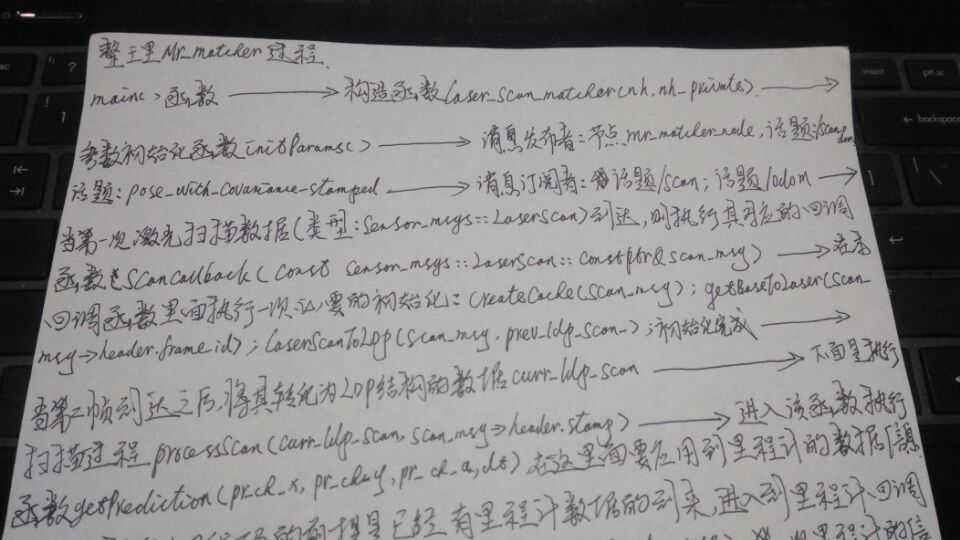 整理 Mr_matcher 过程.
main()函数 → 构造函数 laser_scan_matcher(nh, nh_private) →
参数初始化函数 initParams() → 消息发布者:节点 mr_matcher_node,话题
话题:pose_with_covariance_stamped → 消息订阅者:话题/scan;话题/odom →
当第一次激光扫描数据(类型:sensor_msgs::LaserScan)到达,则执行其对应的回调
函数 scanCallback(const sensor_msgs::LaserScan::ConstPtr& scan_msg) → 在本
回调函数里面执行一次必要的初始化:createCache(scan_msg);getBaseToLaser(scan_
msg→header.frame_id);laserScanToLDP(scan_msg, prev_ldp_scan_);初始化完成 →
当第二帧到达之后,将其转化为LDP结构的数据curr_ldp_scan → 下面是执行
扫描过程 processScan(curr_ldp_scan, scan_msg→header.stamp) → 进入该函数执行
函数getPrediction(pr_ch_x, pr_ch_y, pr_ch_a, dt) 在这里面要应用到里程计的数据信息
的前提是已经有里程计数据的到来,进入到里程计回调
里程计的信